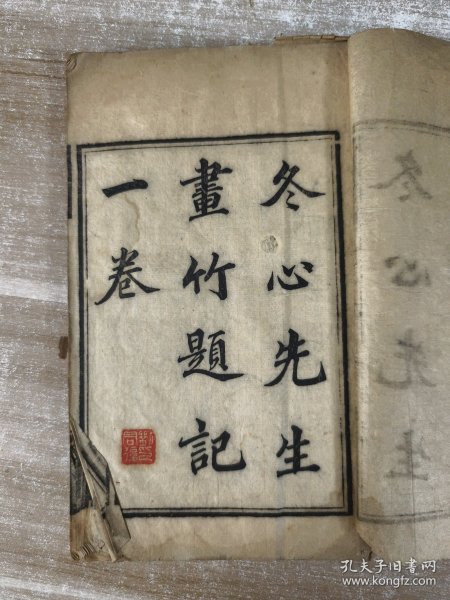 冬心先生
畫竹題記
一卷
冬心先生
孔夫子旧书网
www.kongfz.com